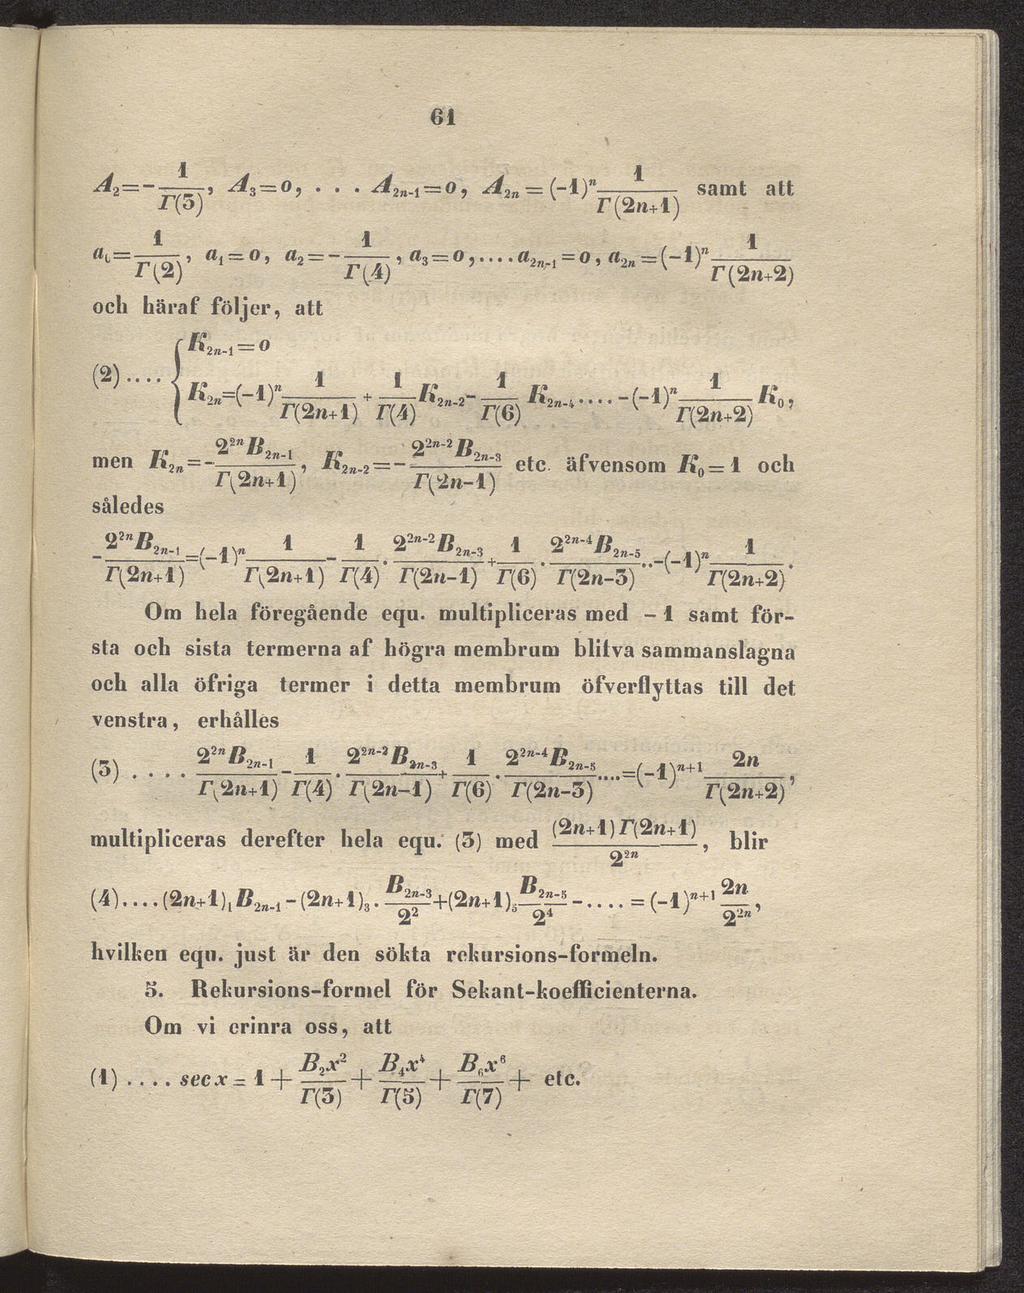 61
A₂=-1/Γ(3), A₃=0, . . . A₂ₙ₋₁=0, A₂ₙ=(-1)ⁿ 1/Γ(2n+1) samt att
a₀=1/Γ(2), a₁=0, a₂=-1/Γ(4), a₃=0,....a₂ₙ₋₁=0, a₂ₙ=(-1)ⁿ 1/Γ(2n+2)
och häraf följer, att
(2).... { K₂ₙ₋₁=0
K₂ₙ=(-1)ⁿ 1/Γ(2n+1) + 1/Γ(4) K₂ₙ₋₂ - 1/Γ(6) K₂ₙ₋₄....-(-1)ⁿ 1/Γ(2n+2) K₀,
men K₂ₙ=-2²ⁿB₂ₙ₋₁/Γ(2n+1), K₂ₙ₋₂=-2²ⁿ⁻²B₂ₙ₋₃/Γ(2n-1) etc. äfvensom K₀=1 och
således
-2²ⁿB₂ₙ₋₁/Γ(2n+1)=(-1)ⁿ 1/Γ(2n+1) - 1/Γ(4) . 2²ⁿ⁻²B₂ₙ₋₃/Γ(2n-1) + 1/Γ(6) . 2²ⁿ⁻⁴B₂ₙ₋₅/Γ(2n-3)..-(-1)ⁿ 1/Γ(2n+2).
Om hela föregående equ. multipliceras med -1 samt för-
sta och sista termerna af högra membrum blifva sammanslagna
och alla öfriga termer i detta membrum öfverflyttas till det
venstra, erhålles
(3) . . . . 2²ⁿB₂ₙ₋₁/Γ(2n+1) - 1/Γ(4) . 2²ⁿ⁻²B₂ₙ₋₃/Γ(2n-1) + 1/Γ(6) . 2²ⁿ⁻⁴B₂ₙ₋₅/Γ(2n-3)....=(-1)ⁿ⁺¹ 2n/Γ(2n+2),
multipliceras derefter hela equ. (3) med (2n+1)Γ(2n+1)/2²ⁿ, blir
(4)....(2n+1)₁B₂ₙ₋₁-(2n+1)₃.B₂ₙ₋₃/2²+(2n+1)₅B₂ₙ₋₅/2⁴-....=(-1)ⁿ⁺¹ 2n/2²ⁿ,
hvilken equ. just är den sökta rekursions-formeln.
5. Rekursions-formel för Sekant-koefficienterna.
Om vi erinra oss, att
(1) .... sec x = 1 + B₂x²/Γ(3) + B₄x⁴/Γ(5) + B₆x⁶/Γ(7) + etc.